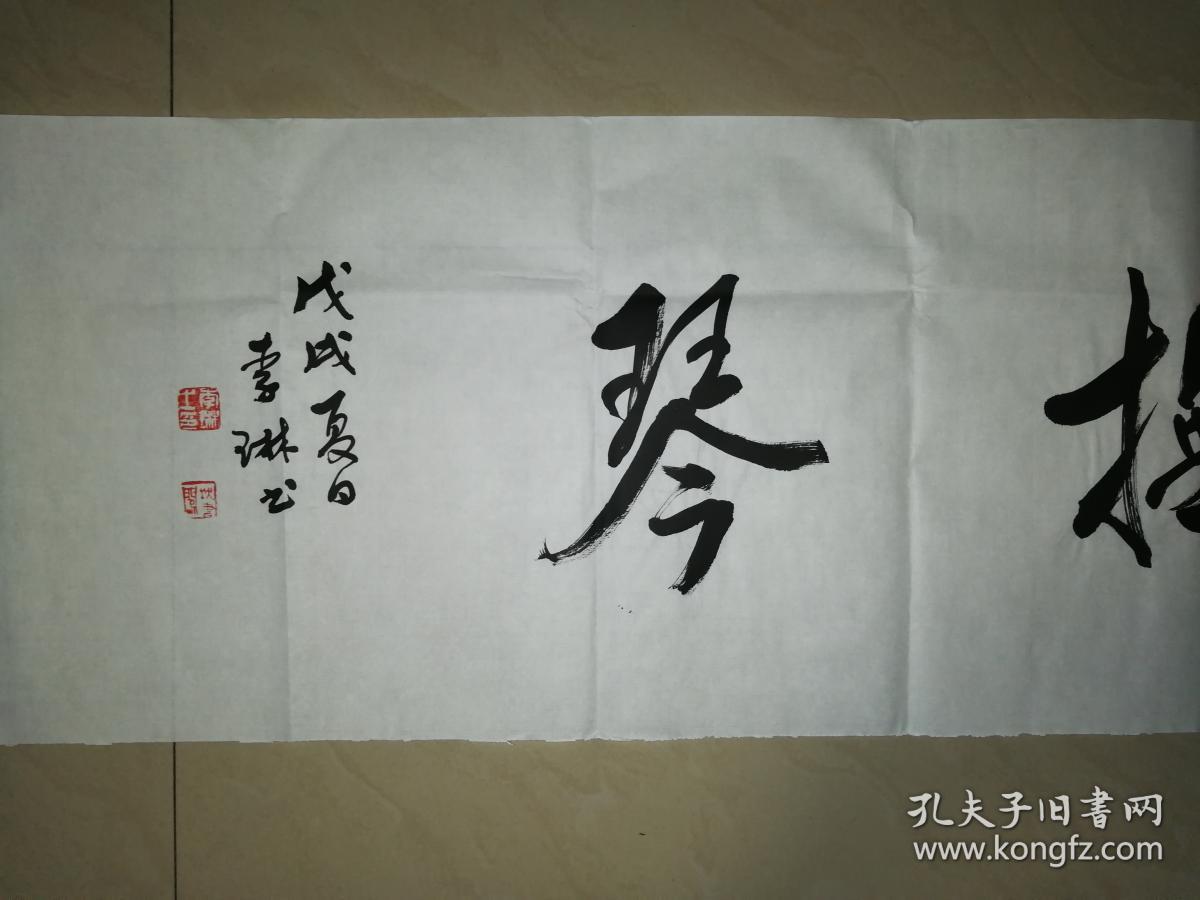 琴
戊戌夏日
李琳书
孔夫子旧书网
www.kongfz.com